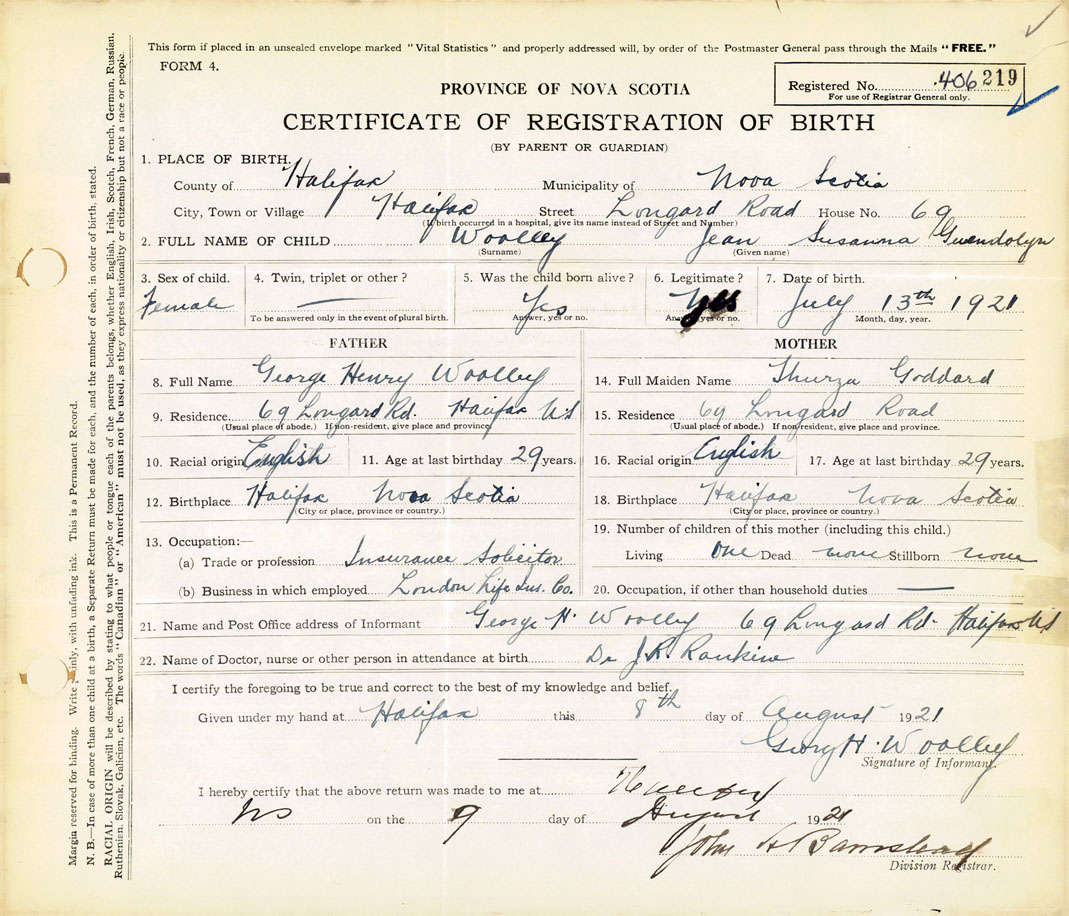 This form if placed in an unsealed envelope marked "Vital Statistics" and properly addressed will, by order of the Postmaster General pass through the Mails "FREE."
FORM 4.
Registered No. 406219
For use of Registrar General only.
PROVINCE OF NOVA SCOTIA
CERTIFICATE OF REGISTRATION OF BIRTH
(BY PARENT OR GUARDIAN)
1. PLACE OF BIRTH.
County of Halifax Municipality of Nova Scotia
City, Town or Village Halifax Street Longard Road House No. 69
(If birth occurred in a hospital, give its name instead of Street and Number)
2. FULL NAME OF CHILD Woolley Jean Susanna Gwendolyn
(Surname) (Given name)
3. Sex of child. 4. Twin, triplet or other? 5. Was the child born alive? 6. Legitimate? 7. Date of birth.
Female Yes Yes July 13th 1921
To be answered only in the event of plural birth. Answer, yes or no. Answer, yes or no. Month, day, year.
FATHER
8. Full Name George Henry Woolley
9. Residence 69 Longard Rd. Halifax NS
(Usual place of abode.) If non-resident, give place and province.
10. Racial origin English 11. Age at last birthday 29 years.
12. Birthplace Halifax Nova Scotia
(City or place, province or country.)
13. Occupation:—
(a) Trade or profession Insurance Solicitor
(b) Business in which employed London Life Ins. Co.
MOTHER
14. Full Maiden Name Thurza Goddard
15. Residence 69 Longard Road
(Usual place of abode.) If non-resident, give place and province.
16. Racial origin English 17. Age at last birthday 29 years.
18. Birthplace Halifax Nova Scotia
(City or place, province or country.)
19. Number of children of this mother (including this child.)
Living One Dead none Stillborn none
20. Occupation, if other than household duties
21. Name and Post Office address of Informant George H. Woolley 69 Longard Rd. Halifax NS
22. Name of Doctor, nurse or other person in attendance at birth Dr J.R. Rankine
I certify the foregoing to be true and correct to the best of my knowledge and belief.
Given under my hand at Halifax this 8th day of August 1921
George H. Woolley
Signature of Informant.
I hereby certify that the above return was made to me at Halifax
NS on the 9 day of August 1921
John A Barnstead
Division Registrar.
Margin reserved for binding. Write plainly, with unfading ink. This is a Permanent Record.
N. B.—In case of more than one child at a birth, a Separate Return must be made for each, and the number of each, in order of birth, stated.
RACIAL ORIGIN will be described by stating to what people or tongue each of the parents belongs, whether English, Irish, Scotch, French, German, Russian,
Ruthenian, Slovak, Galician, etc. The words "Canadian" or "American" must not be used, as they express nationality or citizenship but not a race or people.